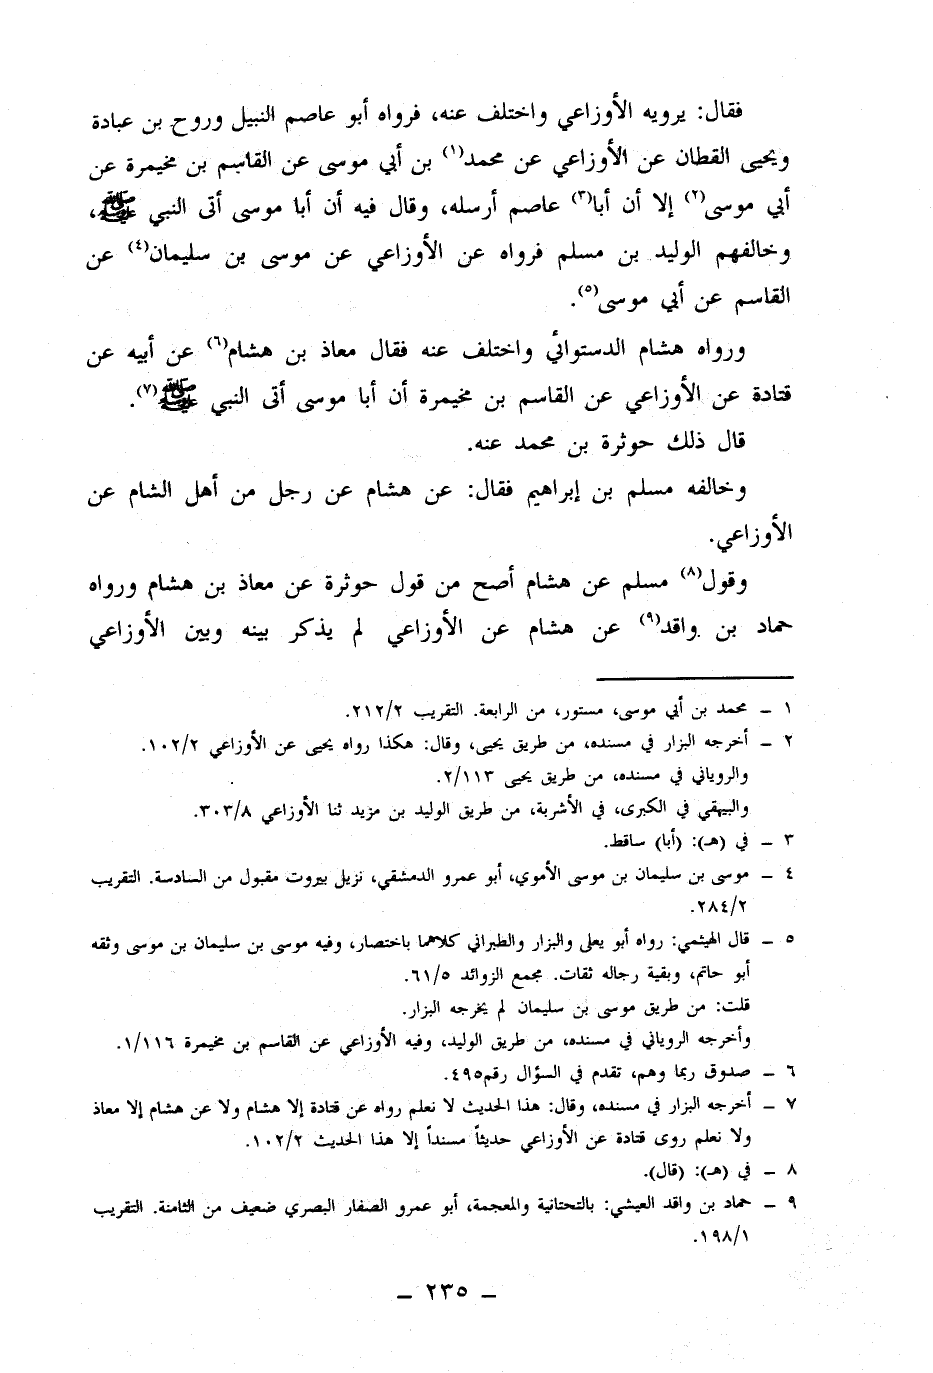 فقال: يرويه الأوزاعي واختلف عنه، فرواه أبو عاصم النبيل وروح بن عبادة
ويحيى القطان عن الأوزاعي عن محمد(١) بن أبي موسى عن القاسم بن مخيمرة عن
أبي موسى(٢) إلا أن أبا(٣) عاصم أرسله، وقال فيه أن أبا موسى أتى النبي ﷺ،
وخالفهم الوليد بن مسلم فرواه عن الأوزاعي عن موسى بن سليمان(٤) عن
القاسم عن أبي موسى(٥).
ورواه هشام الدستوائي واختلف عنه فقال معاذ بن هشام(٦) عن أبيه عن
قتادة عن الأوزاعي عن القاسم بن مخيمرة أن أبا موسى أتى النبي ﷺ(٧).
قال ذلك حوثرة بن محمد عنه.
وخالفه مسلم بن إبراهيم فقال: عن هشام عن رجل من أهل الشام عن
الأوزاعي.
وقول(٨) مسلم عن هشام أصح من قول حوثرة عن معاذ بن هشام ورواه
حماد بن واقد(٩) عن هشام عن الأوزاعي لم يذكر بينه وبين الأوزاعي
١ ـ محمد بن أبي موسى، مستور، من الرابعة. التقريب ٢١٢/٢.
٢ ـ أخرجه البزار في مسنده، من طريق يحيى، وقال: هكذا رواه يحيى عن الأوزاعي ١٠٢/٢.
والروياني في مسنده، من طريق يحيى ٢/١١٣.
والبيهقي في الكبرى، في الأشربة، من طريق الوليد بن مزيد ثنا الأوزاعي ٣٠٣/٨.
٣ ـ في (هـ): (أبا) ساقط.
٤ ـ موسى بن سليمان بن موسى الأموي، أبو عمرو الدمشقي، نزيل بيروت مقبول من السادسة. التقريب
٢٨٤/٢.
٥ ـ قال الهيثمي: رواه أبو يعلى والبزار والطبراني كلاهما باختصار، وفيه موسى بن سليمان بن موسى وثقه
أبو حاتم، وبقية رجاله ثقات. مجمع الزوائد ٦١/٥.
قلت: من طريق موسى بن سليمان لم يخرجه البزار.
وأخرجه الروياني في مسنده، من طريق الوليد، وفيه الأوزاعي عن القاسم بن مخيمرة ١/١١٦.
٦ ـ صدوق ربما وهم، تقدم في السؤال رقم٤٩٥.
٧ ـ أخرجه البزار في مسنده، وقال: هذا الحديث لا نعلم رواه عن قتادة إلا هشام ولا عن هشام إلا معاذ
ولا نعلم روى قتادة عن الأوزاعي حديثاً مسنداً إلا هذا الحديث ١٠٢/٢.
٨ ـ في (هـ): (قال).
٩ ـ حماد بن واقد العيشي: بالتحتانية والمعجمة، أبو عمرو الصفار البصري ضعيف من الثامنة. التقريب
١٩٨/١.
ـ ٢٣٥ ـ